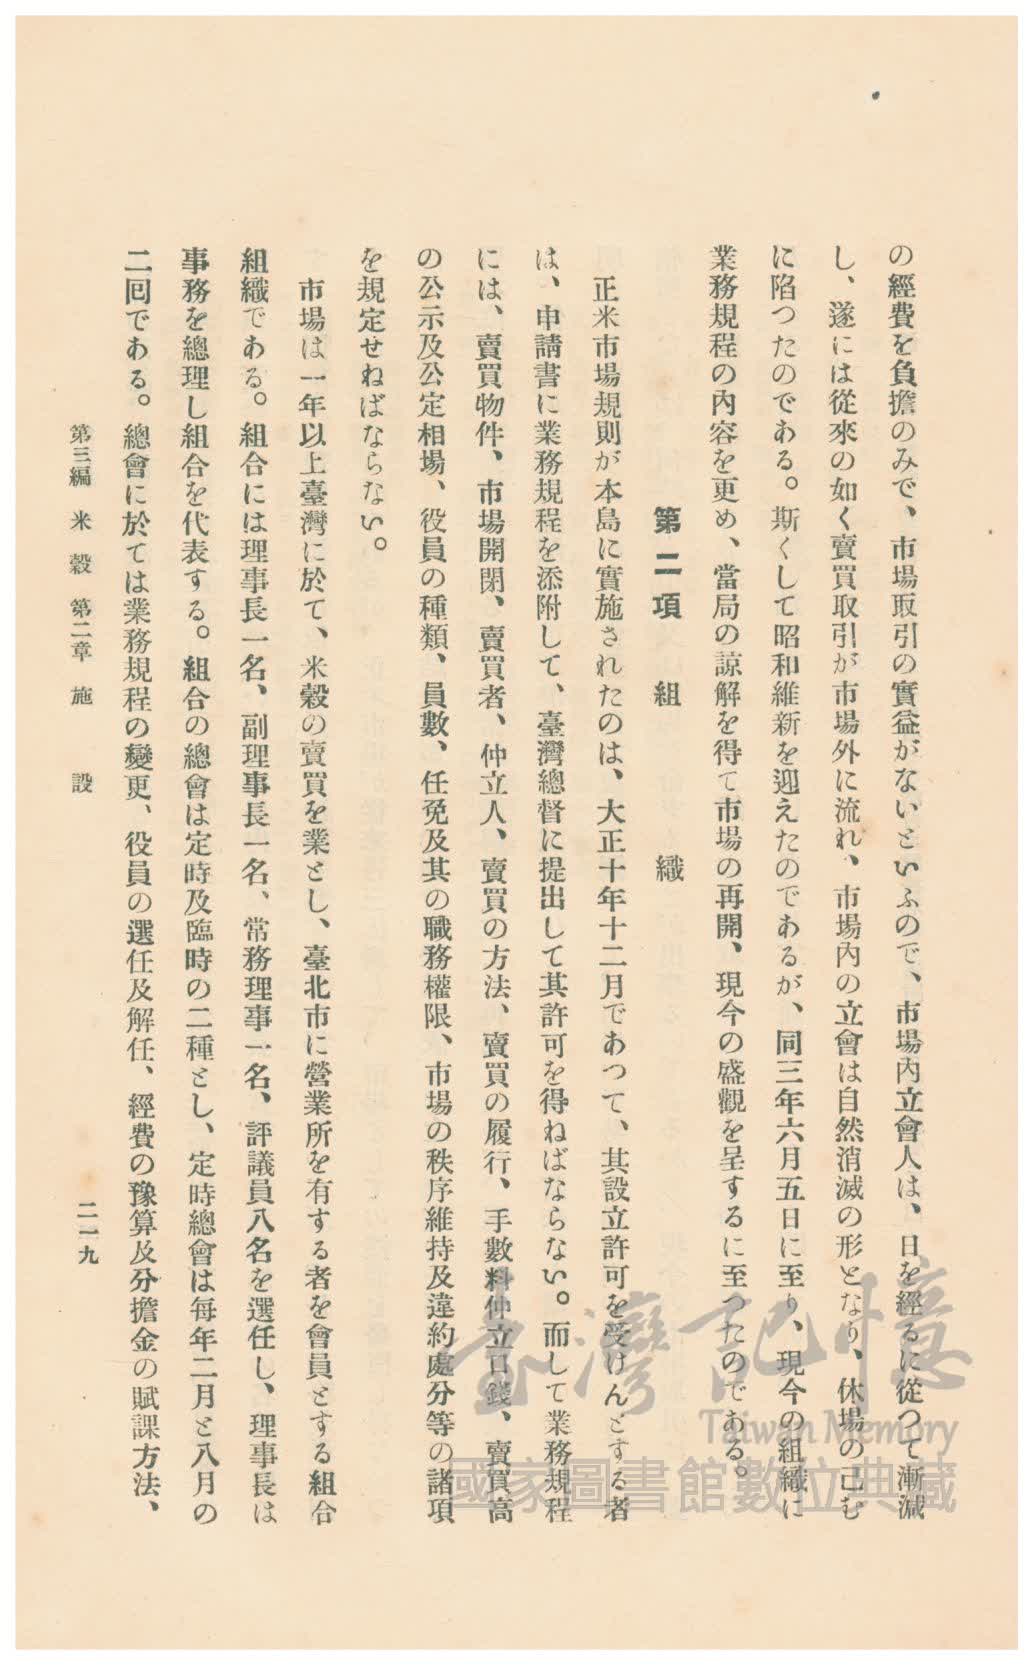 の經費を負擔のみで、市場取引の實益がないといふので、市場內立會人は、日を經るに從つて漸減
し、遂には從來の如く賣買取引が市場外に流れ、市場內の立會は自然消滅の形となり、休場の己む
に陷つたのである。斯くして昭和維新を迎えたのであるが、同三年六月五日に至り、現今の組織に
業務規程の內容を更め、當局の諒解を得て市場の再開、現今の盛觀を呈するに至つたのである。
第二項 組織
正米市場規則が本島に實施されたのは、大正十年十二月であつて、其設立許可を受けんとする者
は、申請書に業務規程を添附して、臺灣總督に提出して其許可を得ねばならない。而して業務規程
には、賣買物件、市場開閉、賣買者、仲立人、賣買の方法、賣買の履行、手數料仲立口錢、賣買高
の公示及公定相場、役員の種類、員數、任免及其の職務權限、市場の秩序維持及違約處分等の諸項
を規定せねばならない。
市場は一年以上臺灣に於て、米穀の賣買を業とし、臺北市に營業所を有する者を會員とする組合
組織である。組合には理事長一名、副理事長一名、常務理事一名、評議員八名を選任し、理事長は
事務を總理し組合を代表する。組合の總會は定時及臨時の二種とし、定時總會は每年二月と八月の
二囘である。總會に於ては業務規程の變更、役員の選任及解任、經費の豫算及分擔金の賦課方法、
第三編 米穀 第二章 施設
二一九
臺灣記憶
Taiwan Memory
國家圖書館數位典藏